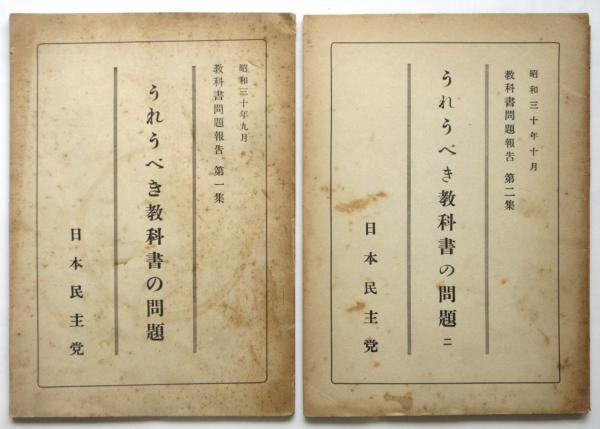 昭和三十年九月
教科書問題報告 第一集
うれうべき教科書の問題
日本民主党
昭和三十年十月
教科書問題報告 第二集
うれうべき教科書の問題 二
日本民主党